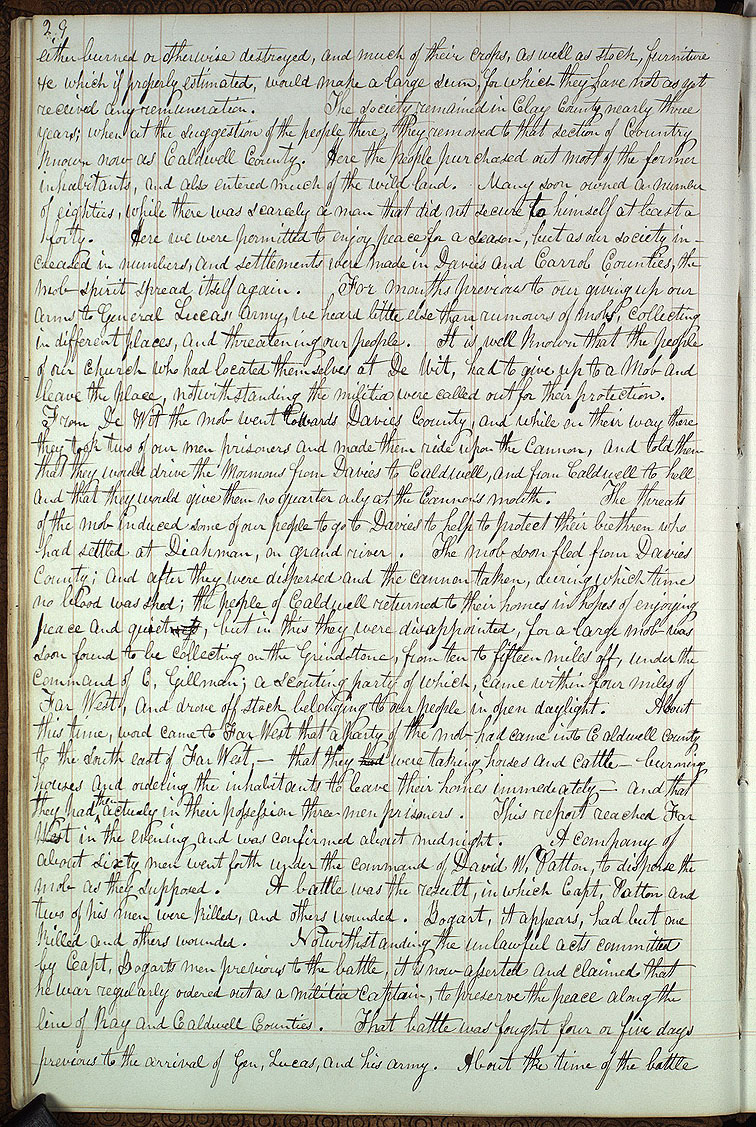 29
either burned or otherwise destroyed, and much of their crops, as well as stock, furniture
&c which if properly estimated, would make a large sum, for which they have not as yet
received any remuneration. The society remained in Clay County nearly three
years; when at the suggestion of the people there, they removed to that section of Country
known now as Caldwell County. Here the people purchased out most of the former
inhabitants, and also entered much of the wild land. Many soon owned a number
of eighties, while there was scarcely a man that did not secure to himself at least a
forty. Here we were permitted to enjoy peace for a season, but as our society in-
creased in numbers, and settlements were made in Davies and Carrol Counties, the
mob spirit spread itself again. For months previous to our giving up our
arms to General Lucas' Army, we heard little else than rumours of mobs, collecting
in different places, and threatening our people. It is well known that the people
of our church who had located themselves at De Wit, had to give up to a Mob and
leave the place, notwithstanding the militia were called out for their protection.
From De Wit the mob went towards Davies County, and while on their way there
they took two of our men prisoners and made them ride upon the Cannon, and told them
that they would drive the Mormons from Davies to Caldwell, and from Caldwell to hell
and that they would give them no quarter only at the Cannon's mouth. The threats
of the mob induced some of our people to go to Davies to help to protect their brethren who
had settled at Diahman, on grand river. The mob soon fled from Davies
County; and after they were dispersed and the cannon taken, during which time
no blood was shed; the people of Caldwell returned to their homes in hopes of enjoying
peace and quiet, but in this they were disappointed, for a large mob was
soon found to be collecting on the Grindstone, from ten to fifteen miles off, under the
command of C, Gillman; a scouting party of which, came within four miles of
Far West, and drove off stock belonging to our people in open daylight. About
this time, word came to Far West that a party of the mob had came into Caldwell county
to the South east of Far West,— that they had were taking horses and cattle— burning
houses and ordering the inhabitants to leave their homes immediately— and that
they had then actually in their possession three men prisoners. This report reached Far
West in the evening and was confirmed about midnight. A company of
about sixty men went forth under the command of David W, Patton, to disperse the
mob as they supposed. A battle was the result, in which Capt, Patton and
two of his men were killed, and others wounded. Bogart, it appears, had but one
killed and others wounded. Notwithstanding the unlawful acts committed
by Capt, Bogarts men previous to the battle, it is now asserted and claimed that
he war regularly ordered out as a militia Captain, to preserve the peace along the
line of Ray and Caldwell Counties. That battle was fought four or five days
previous to the arrival of Gen, Lucas, and his army. About the time of the battle